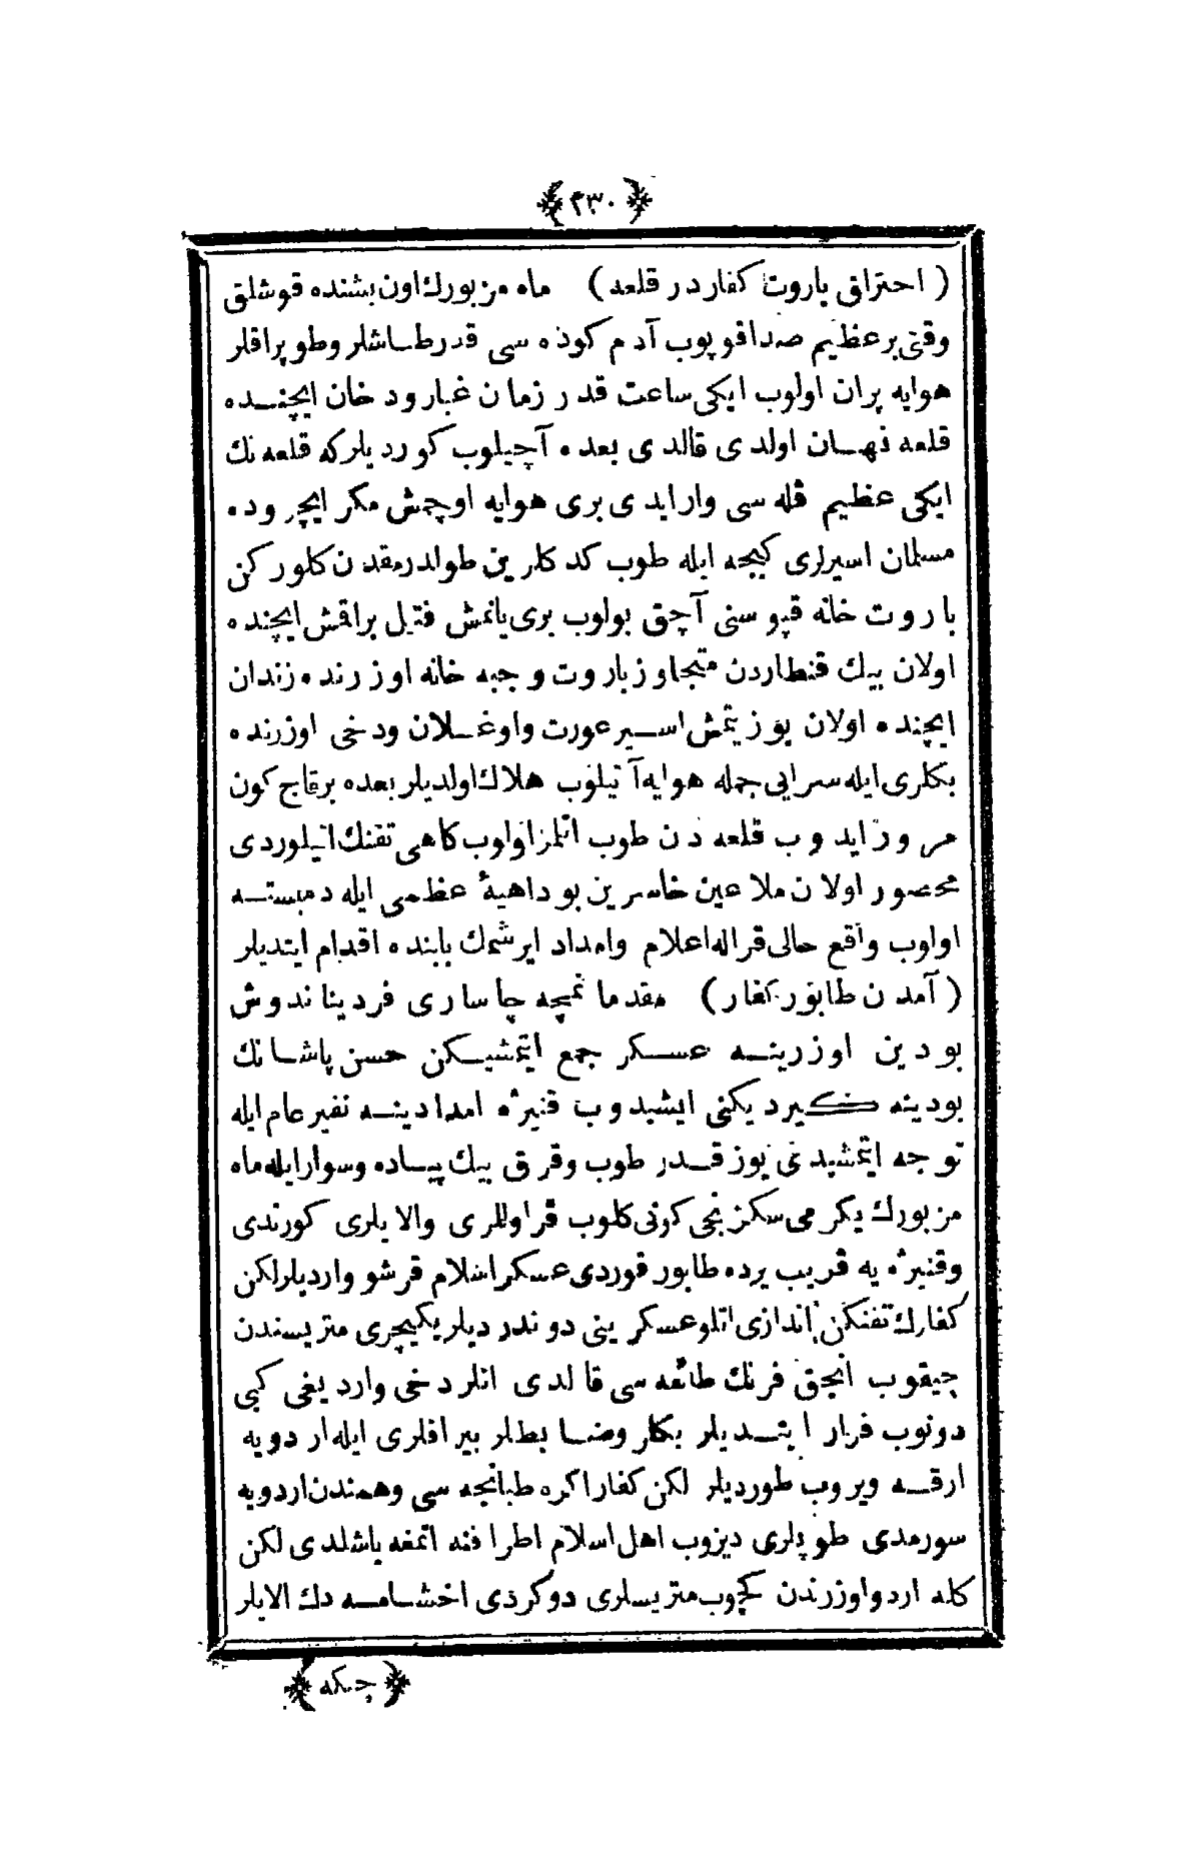 ﴿٢٣٠﴾
( احتراق باروت كفار در قلعه ) ماه مزبورك اون بشنده قوشلق
وقتى بر عظيم صدا قوپوب آدم كوده سى قدر طاشلر و طوپراقلر
هوايه پران اولوب ايكى ساعت قدر زمان غبار و دخان ايچنده
قلعه نهان اولدى قالدى بعده آچيلوب كورديلر كه قلعه نك
ايكى عظيم قله سى وار ايدى برى هوايه اوچمش مكر ايچروده
مسلمان اسيرلرى كيجه ايله طوب كدكلرين طولدرمقدن كلوركن
باروت خانه قپوسنى آچق بولوب برى يانمش فتيل براقمش ايچنده
اولان بيك قنطاردن متجاوز باروت و جبه خانه اوزرنده زندان
ايچنده اولان يوز يتمش اسير عورت و اوغلان و دخى اوزرنده
بكلرى ايله سرايى جمله هوايه آتيلوب هلاك اولديلر بعده بر قاچ كون
مرور ايدوب قلعه دن طوب اتلمز اولوب كاهى تفنك اتيلوردى
محصور اولان ملاعين خاسرين بو داهيۀ عظمى ايله دمبسته
اولوب واقع حالى قراله اعلام و امداد ايرشمك بابنده اقدام ايتديلر
( آمدن طابور كفار ) مقدما نمچه چاسارى فرديناندوش
بودين اوزرينه عسكر جمع ايتمشيكن حسن پاشانك
بودينه كيرديكنى ايشيدوب قنيژه امدادينه نفير عام ايله
توجه ايتمشيدى يوز قدر طوب و قرق بيك پياده و سوار ايله ماه
مزبورك يكرمى سكزنجى كونى كلوب قراوللرى و الايلرى كورندى
و قنيژه يه قريب يرده طابور قوردى عسكر اسلام قرشو وارديلر لكن
كفارك تفنكن اندازى اتلو عسكرينى دوندرديلر يكيچرى متريسندن
چيقوب انجق فرنك طائفه سى قالدى انلر دخى وارديغى كبى
دونوب فرار ايتديلر بكلر و ضابطلر بيراقلرى ايله اردويه
ارقه ويروب طورديلر لكن كفار اكره طبانجه سى وهمندن اردويه
سورمدى طوپلرى ديزوب اهل اسلام اطرافنه اتمغه باشلدى لكن
كله اردو اوزرندن كچوب متريسلرى دوكردى اخشامه دك الايلر
﴿چكه﴾